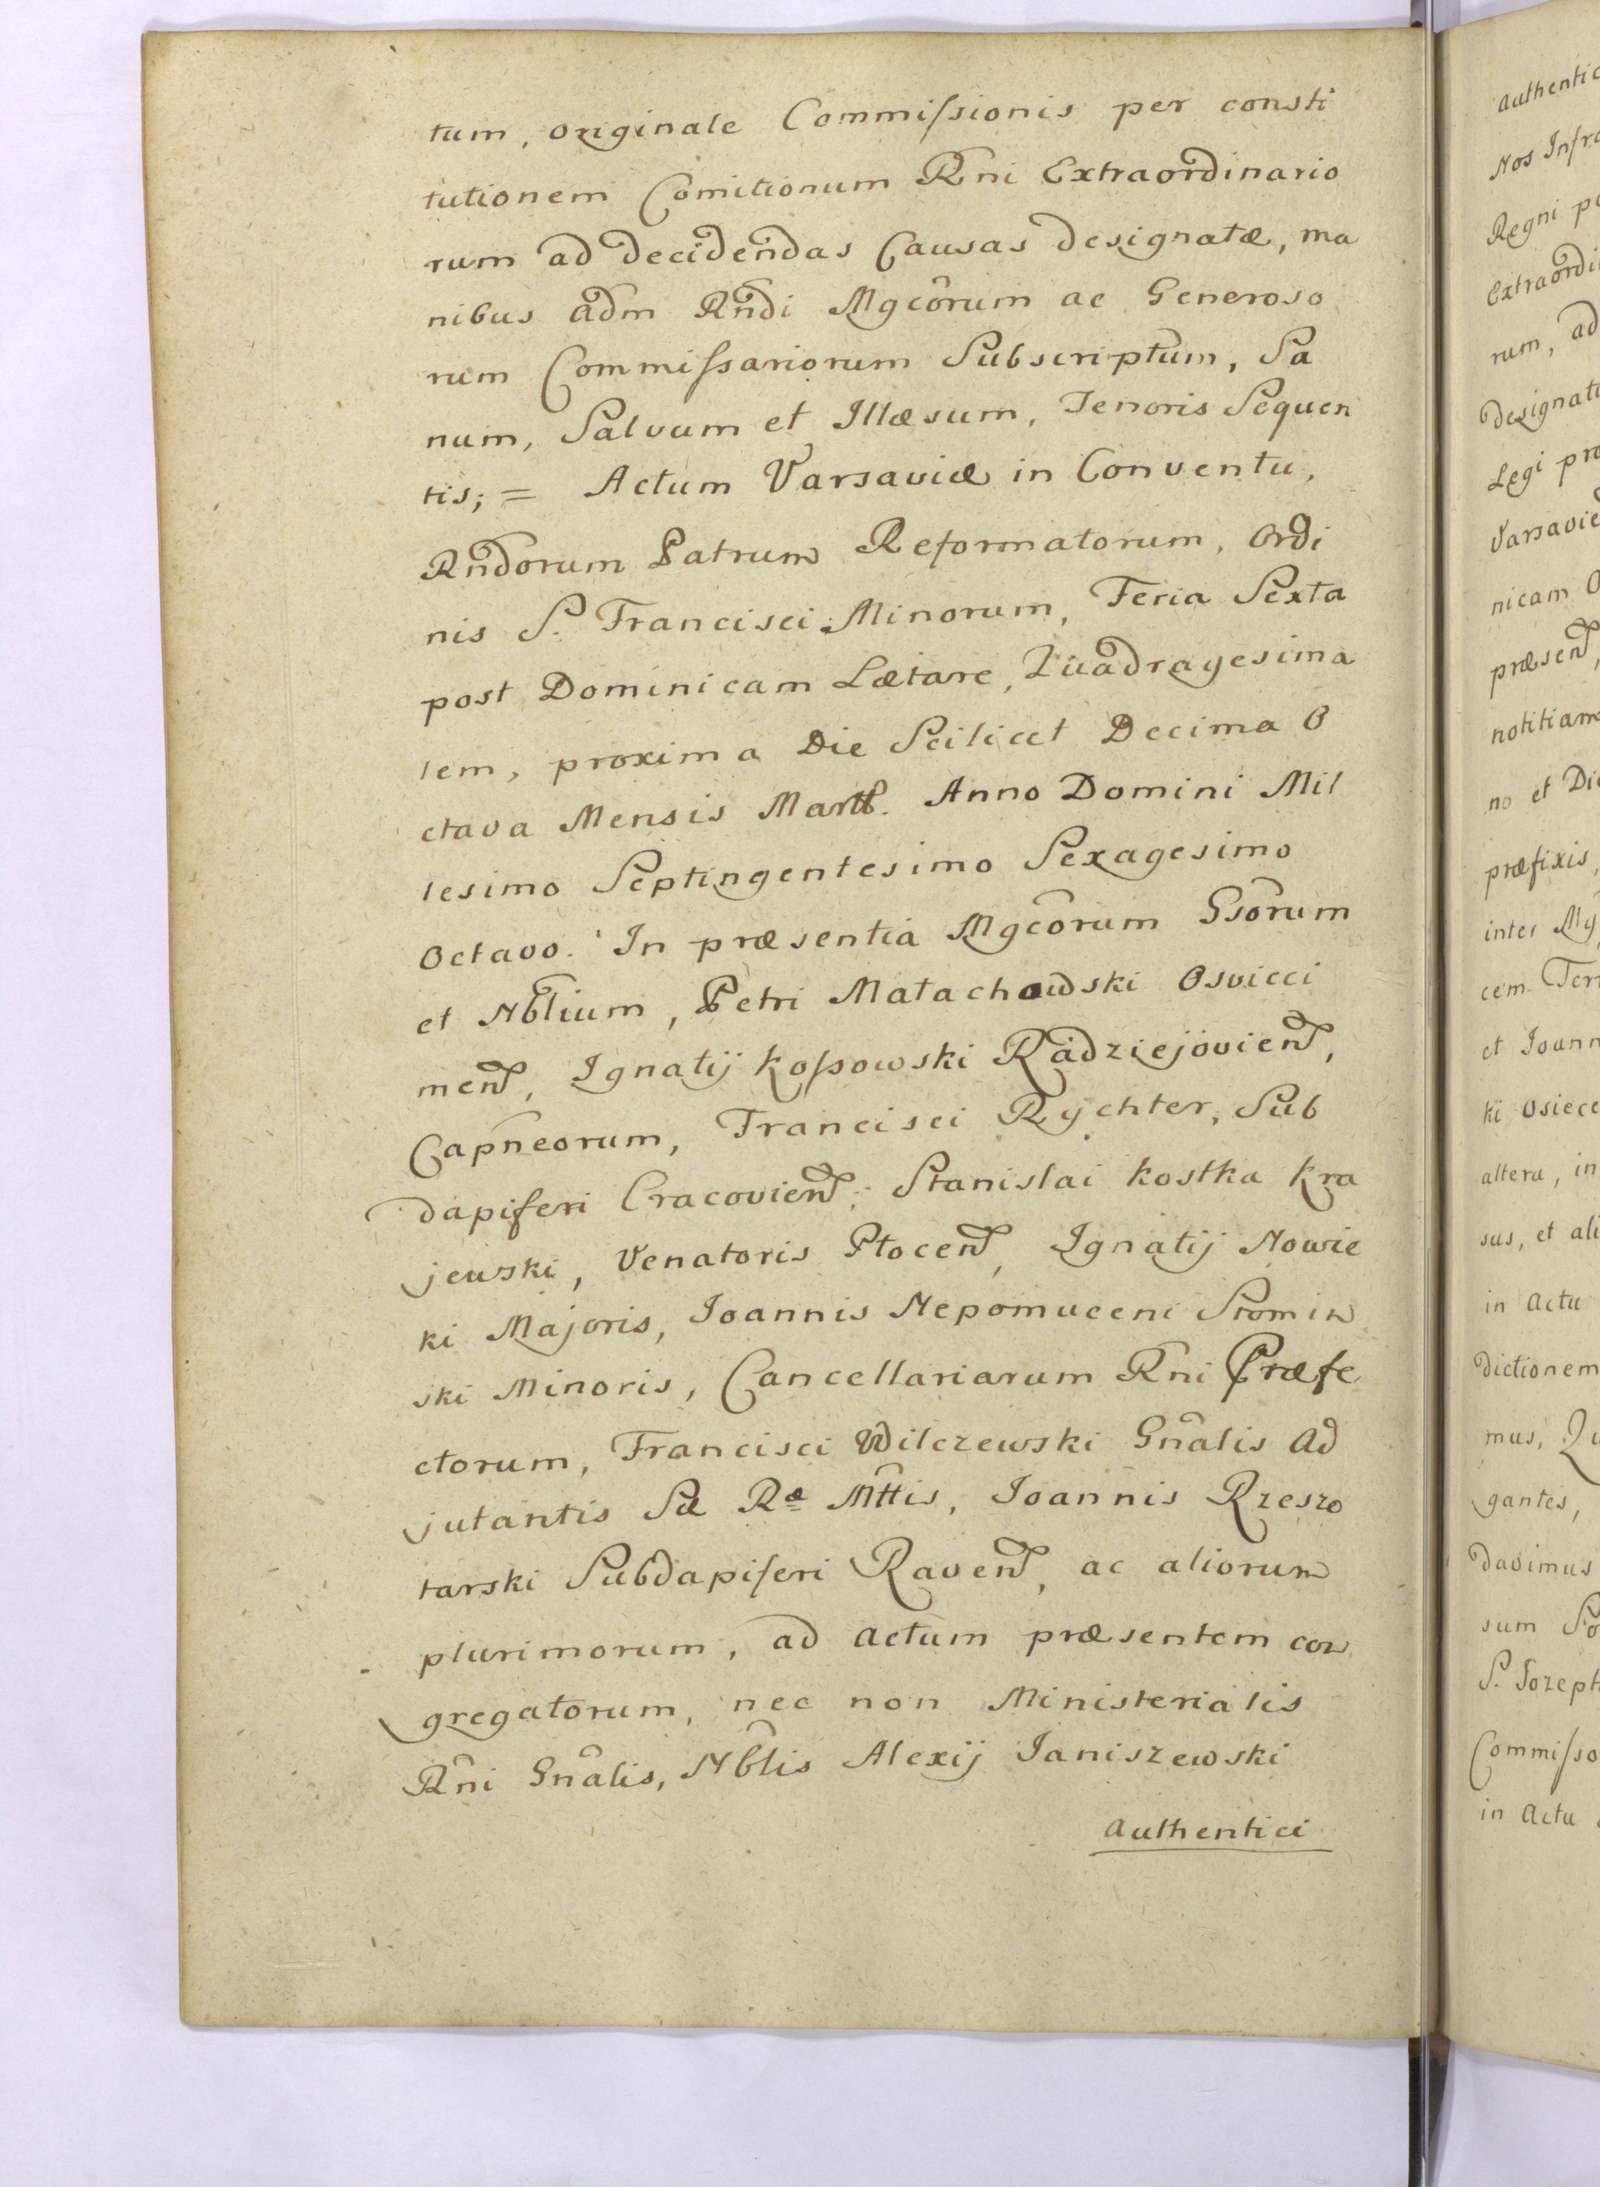 tum, originale Commißionis per consti
tutionem Comitionum Rni Extraordinario
rum ad decidendas Causas designatæ, ma
nibus adm Rndi Mgcorum ac Generoso
rum Commißariorum Subscriptum, Sa
num, Salvum et Illæsum, Tenoris Sequen
tis; = Actum Varsaviæ in Conventu,
Rndorum Patrum Reformatorum, Ordi
nis S. Francisci Minorum, Feria Sexta
post Dominicam Lætare, Quadragesima
lem, proxima Die Scilicet Decima O
ctava Mensis Martii. Anno Domini Mil
lesimo Septingentesimo Sexagesimo
Octavo. In præsentia Mgcorum Gsorum
et Nblium, Petri Matachowski Osvieci
men, Ignatij Koßowski Radziejovien,
Capneorum, Francisci Rychter, Sub
dapiferi Cracovien; Stanislai Kostka Kra
jewski, Venatoris Plocen, Ignatij Nowie
ki Majoris, Joannis Nepomuceni Slomin
ski Minoris, Cancellariarum Rni Præfe
ctorum, Francisci Wilczewski Gnalis Ad
jutantis Sæ Ræ Mttis, Joannis Rzeszo
tarski Subdapiferi Raven, ac aliorum
plurimorum, ad actum præsentem con
gregatorum, nec non Ministerialis
Rni Gnalis, Nblis Alexij Janiszewski
authentici
Nos Infra
Regni
rum, ad
Legi
nicam
præsen,
notitiam
no et
præfixis,
inter
cem
et
ki
altera, in
sus, et
in Actu
dictionem
mus,
gantes,
davimus
sum
S.
in Actu